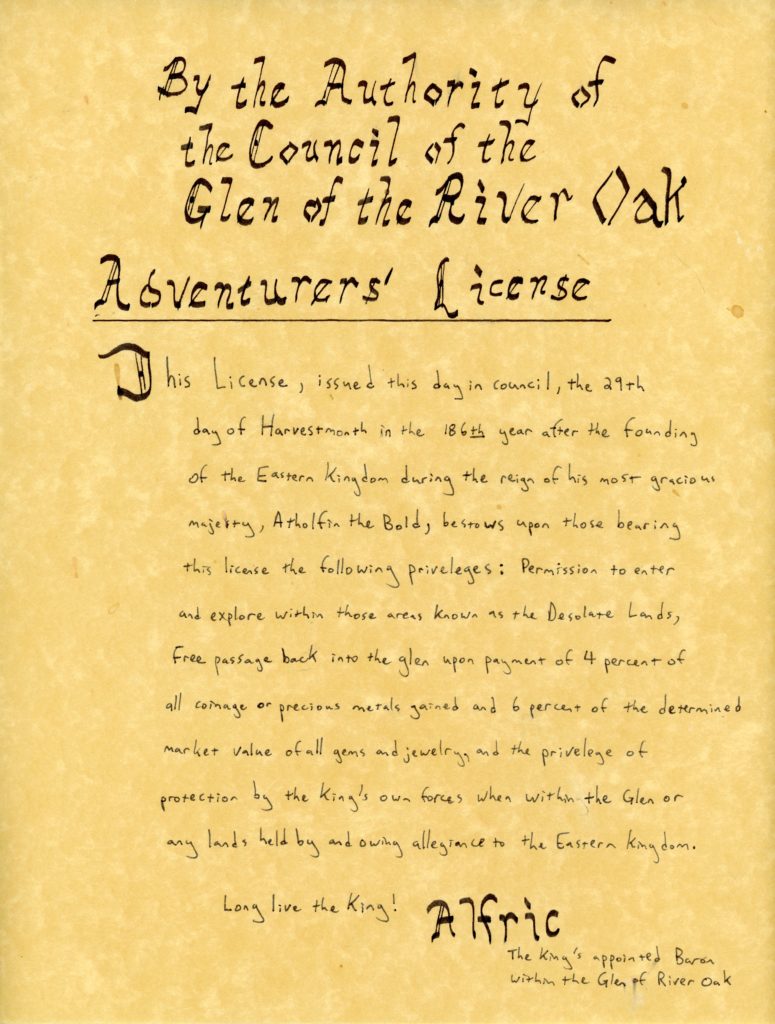 By the Authority of
the Council of the
Glen of the River Oak
Adventurers' License
This License, issued this day in council, the 29th
day of Harvestmonth in the 186th year after the founding
of the Eastern Kingdom during the reign of his most gracious
majesty, Atholfin the Bold, bestows upon those bearing
this license the following priveleges: Permission to enter
and explore within those areas known as the Desolate Lands,
Free passage back into the glen upon payment of 4 percent of
all coinage or precious metals gained and 6 percent of the determined
market value of all gems and jewelry, and the privelege of
protection by the King's own forces when within the Glen or
any lands held by and owing allegiance to the Eastern Kingdom.
Long live the King!
Alfric
The King's appointed Baron
within the Glen of River Oak